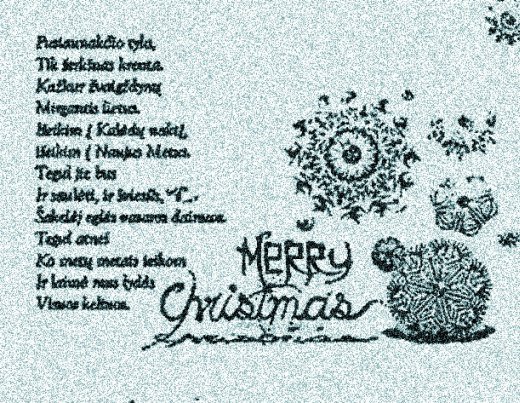 Pusiaunakčio tyla,
Tik šerkšnas krenta.
Kažkur žvaigždynų
Mirgantis
Išeikim į Kalėdų naktį,
Išeikim į Naujus Metus.
Tegul jie bus
Ir saulėti, ir šviesūs,
Šakelėj eglės vasaros dainuos.
Tegul atneš
Ko metų metais ieškom
Ir laimė mus lydės
Visuos keliuos.
Merry
Christmas